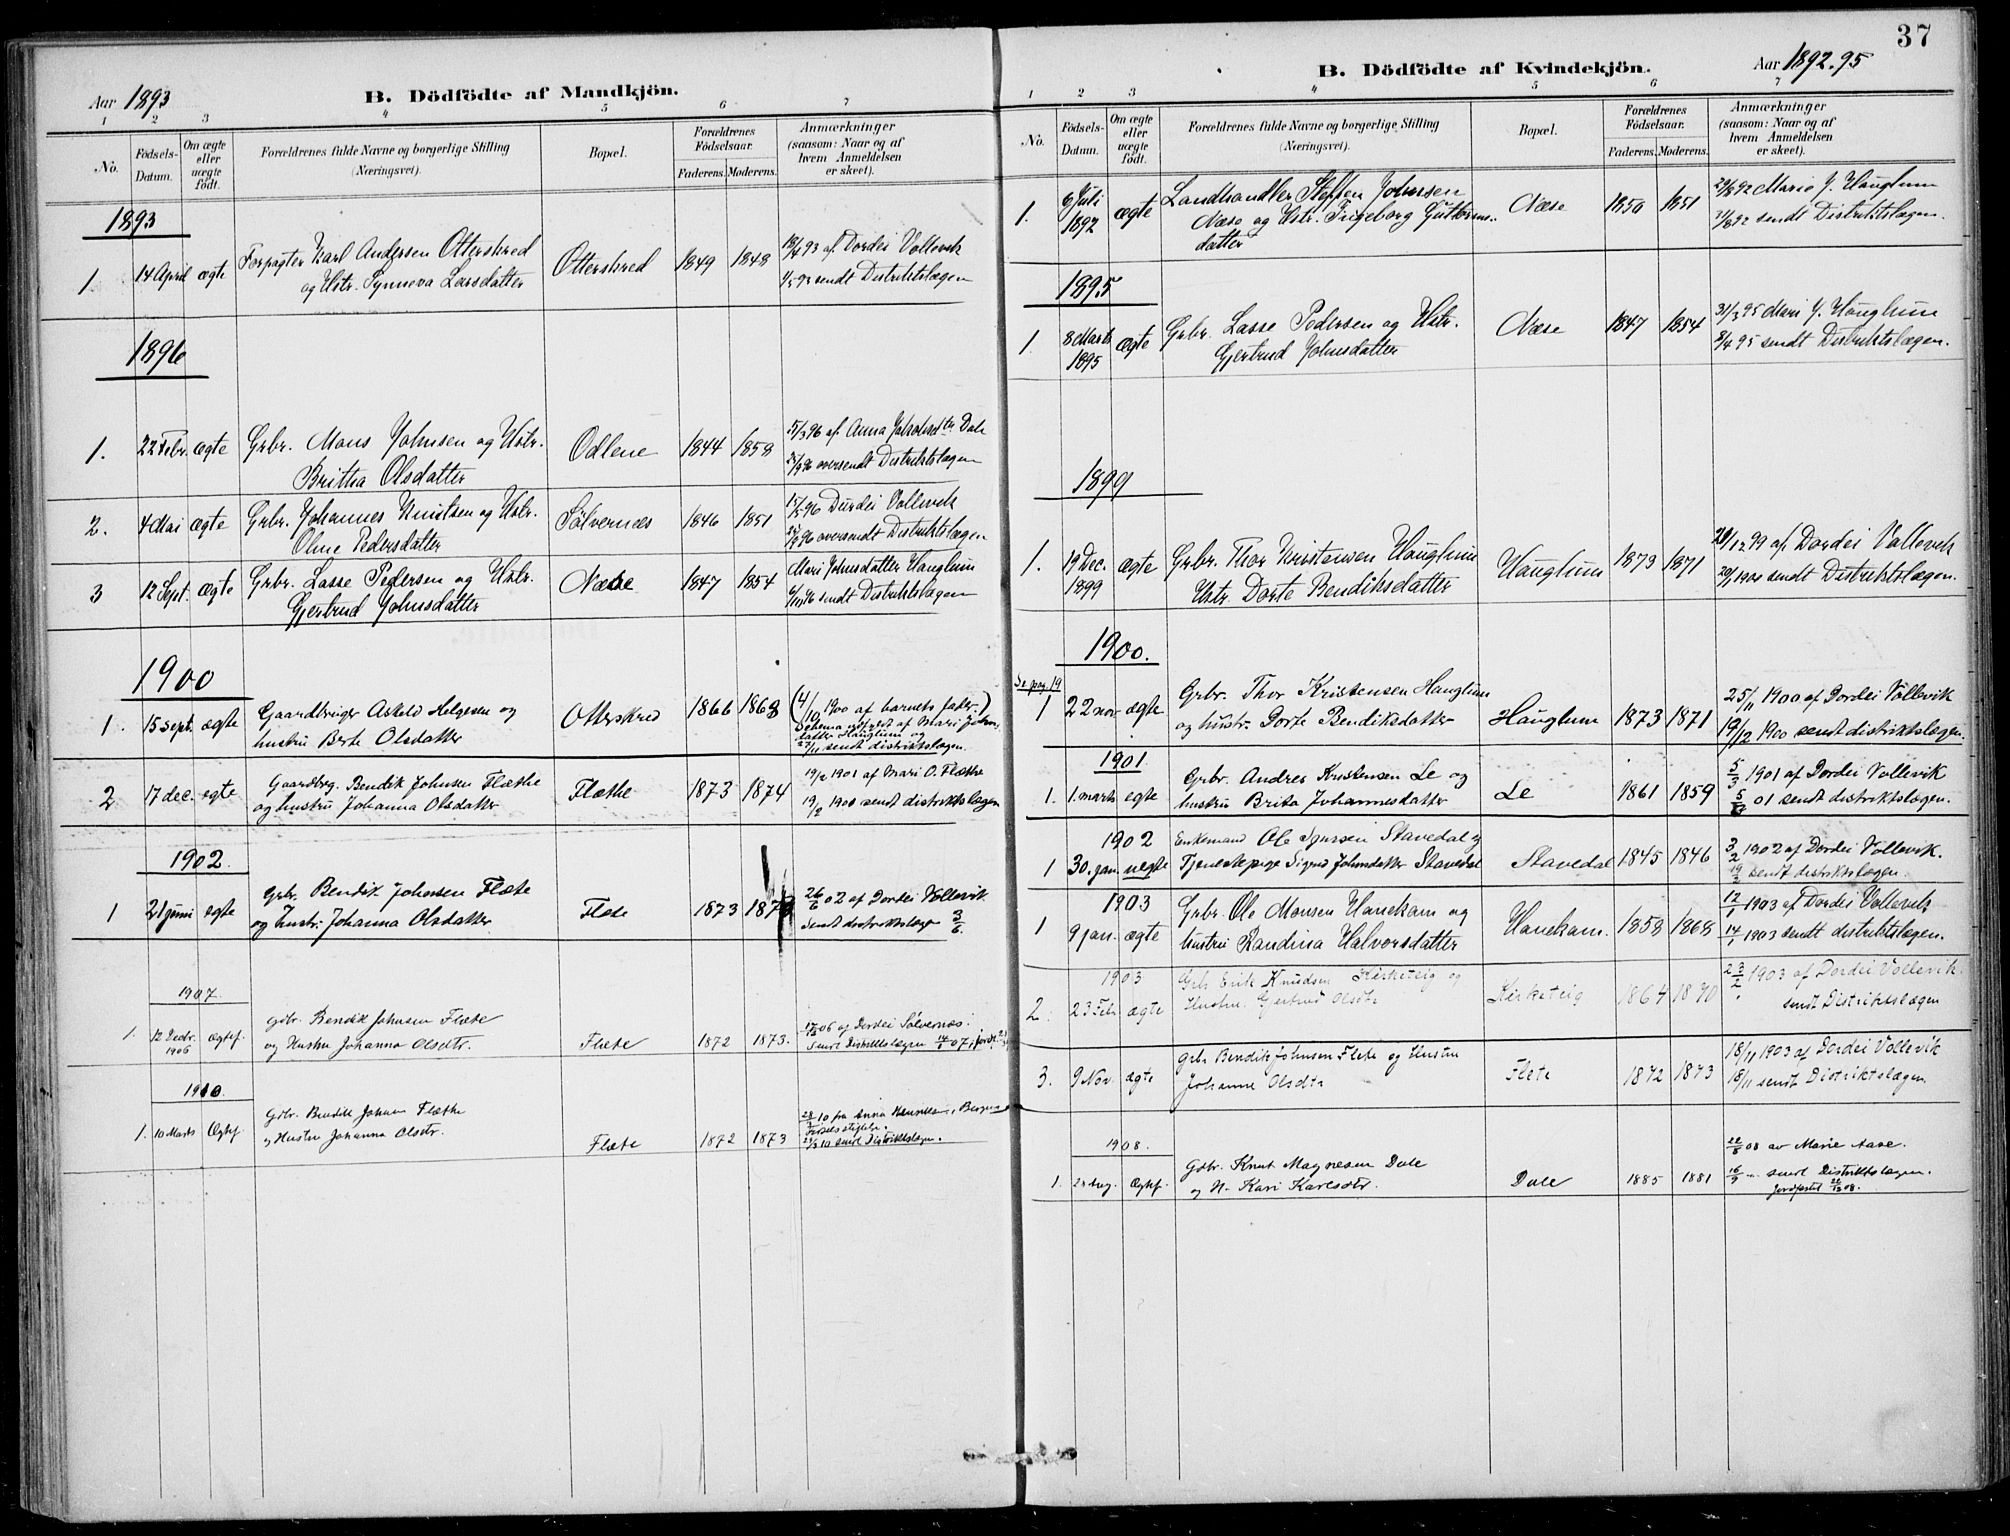 Aar 1893
B. Dödfödte af Mandkjön.
1 2 3 4 5 6 7
No.
Födsels-Datum.
Om ægte eller uægte födt.
Forældrenes fulde Navne og borgerlige Stilling (Næringsvei).
Bopæl.
Forældrenes Födselsaar.
Faderens. Moderens.
Anmærkninger (saasom: Naar og af hvem Anmeldelsen er skeet).
1893
1. 14 April ægte Forpagter Karl Andersen Otterskred Otterskred 1849 1848 18/4 93 af Dordei Vollevik
og Hstr. Synneva Larsdatter 1/5 93 sendt Distriktslægen
1896
1. 22 Febr. ægte Grbr. Mons Johnsen og Hstr. Odlene 1844 1858 15/3 96 af Anna Dale
Britha Olsdatter oversendt Distriktslægen
2. 4 Mai ægte Grbr. Johannes Knutsen og Hstr. Sölvernæs 1846 1851 15/5 96 Durdei Vollevik
Oline Pedersdatter oversendt Distriktslægen
3 12 Sept. ægte Grbr. Lasse Pedersen og Hstr. Næse 1847 1854 Mari Johnsdatter Hauglum
Gjertrud Johnsdatter sendt Distriktslægen
1900
1. 15 sept. ægte Gaardbruger Askeld Helgesen og Otterskred 1866 1868 (4/10 1900 af barnets fader.)
hustru Berte Olsdatter Schema udfyldt af Mari Johns-
datter Hauglum og
27/11 sendt distriktslægen.
2 17 dec. egte Gaardbrg. Bendik Johnsen Flæthe Flæthe 1873 1874 19/2 1901 af Mari O. Flæthe
og hustru Johanna Olsdatter 19/2 1900 sendt distriktslægen
1902.
1 21 juni egte Grbr. Bendik Johnsen Flæte Flæte 1873 187 26/6 02 af Dordei Vollevik
og hustr. Johanna Olsdatter sendt distriktslæge
1907.
1. 12 Decbr. 1906 Ægtef. Gdbr. Bendik Johnsen Flæte Flæte 1872 1873. 06 af Dordei Sølvernæs.
og Hustru Johanna Olsdtr. Sendt Distriktslægen 07,
1910.
1. 10 Marts Ægtef. Gdbr. Bendik Johnsen Flæthe Flæte 1872 1873 10 fra Anna Bergen
og Hustru Johanna Olsdtr. Fødselsstiftelse.
10 sendt Distriktslægen.
37
B. Dödfödte af Kvindekjön.
Aar 1892.95
1 2 3 4 5 6 7
No.
Födsels-Datum.
Om ægte eller uægte födt.
Forældrenes fulde Navne og borgerlige Stilling (Næringsvei).
Bopæl.
Forældrenes Födselsaar.
Faderens. Moderens.
Anmærkninger (saasom: Naar og af hvem Anmeldelsen er skeet).
1. 6 Juli 1892 ægte Landhandler Steffen Johnsen Næse 1850 1851 29/8 92 Marie J. Hauglum
Næse og Hstr. Ingeborg Guttorms- 31/8 92 sendt Distriktslægen.
datter
1895
1. 8 Marts 1895 ægte Grbr. Lasse Pedersen og Hstr. Næse 1847 1854 31/3 95 Mari J. Hauglum
Gjertrud Johnsdatter 8/4 95 sendt Distriktslægen.
1899
1. 19 Dec. 1899 ægte Grbr. Thor Kristensen Hauglum Hauglum 1873 1871 20/12 99 af Dordei Vollevik
Hstr. Dorte Bendiksdatter 20/1 1900 sendt Distriktslægen.
1900.
Se pag. 19
1 22 nov. ægte Grbr. Thor Kristensen Hauglum Hauglum 1873 1871 25/11 1900 af Dordei Vollevik
og hustr. Dorte Bendiksdatter 19/12 1900 sendt distriktslægen.
1901
1. 1. marts egte Grbr. Andres Kristensen Le og Le 1861 1859 5/3 1901 af Dordei Vollevik
hustru Brita Johannesdatter 01 sendt distriktslægen.
1902
1 30. jan. uegte Enkemand Ole Stavedal og Stavedal 1845 1846 3/2 1902 af Dordei Vollevik.
Tjenestepige Sigrid Johnsdatter Stavedal sendt distriktslægen.
1903
1 9 jan. ægte Grbr. Ole Monsen Hanekam og Hanekam. 1858 1868 12/1 1903 af Dordei Vollevik
hustru Randina Halvorsdatter 14/1 1903 sendt distriktslægen.
1903
2. 23 Febr. ægte Grbr. Erik Knudsen Kirketeig og Kirketeig 1864 1870 23/2 1903 af Dordei Vollevik.
Hustru. Gjertrud Olsdtr sendt Distriktslægen
3. 9 Nov. ægte Grbr. Bendik Johnsen Flete og Hustru Flete 1872 1873 18/11 1903 af Dordei Vollevik
Johanne Olsdtr 18/11 sendt Distriktslægen.
1908.
1. Aug. Ægtef. Gdbr. Knut Magnesen Dale Dale 1885 1881 22/8 08 av Marie Aase.
og H. Kari Karlsdtr. 16/9 sendt Distriktslægen.
Jordfæstet 08.